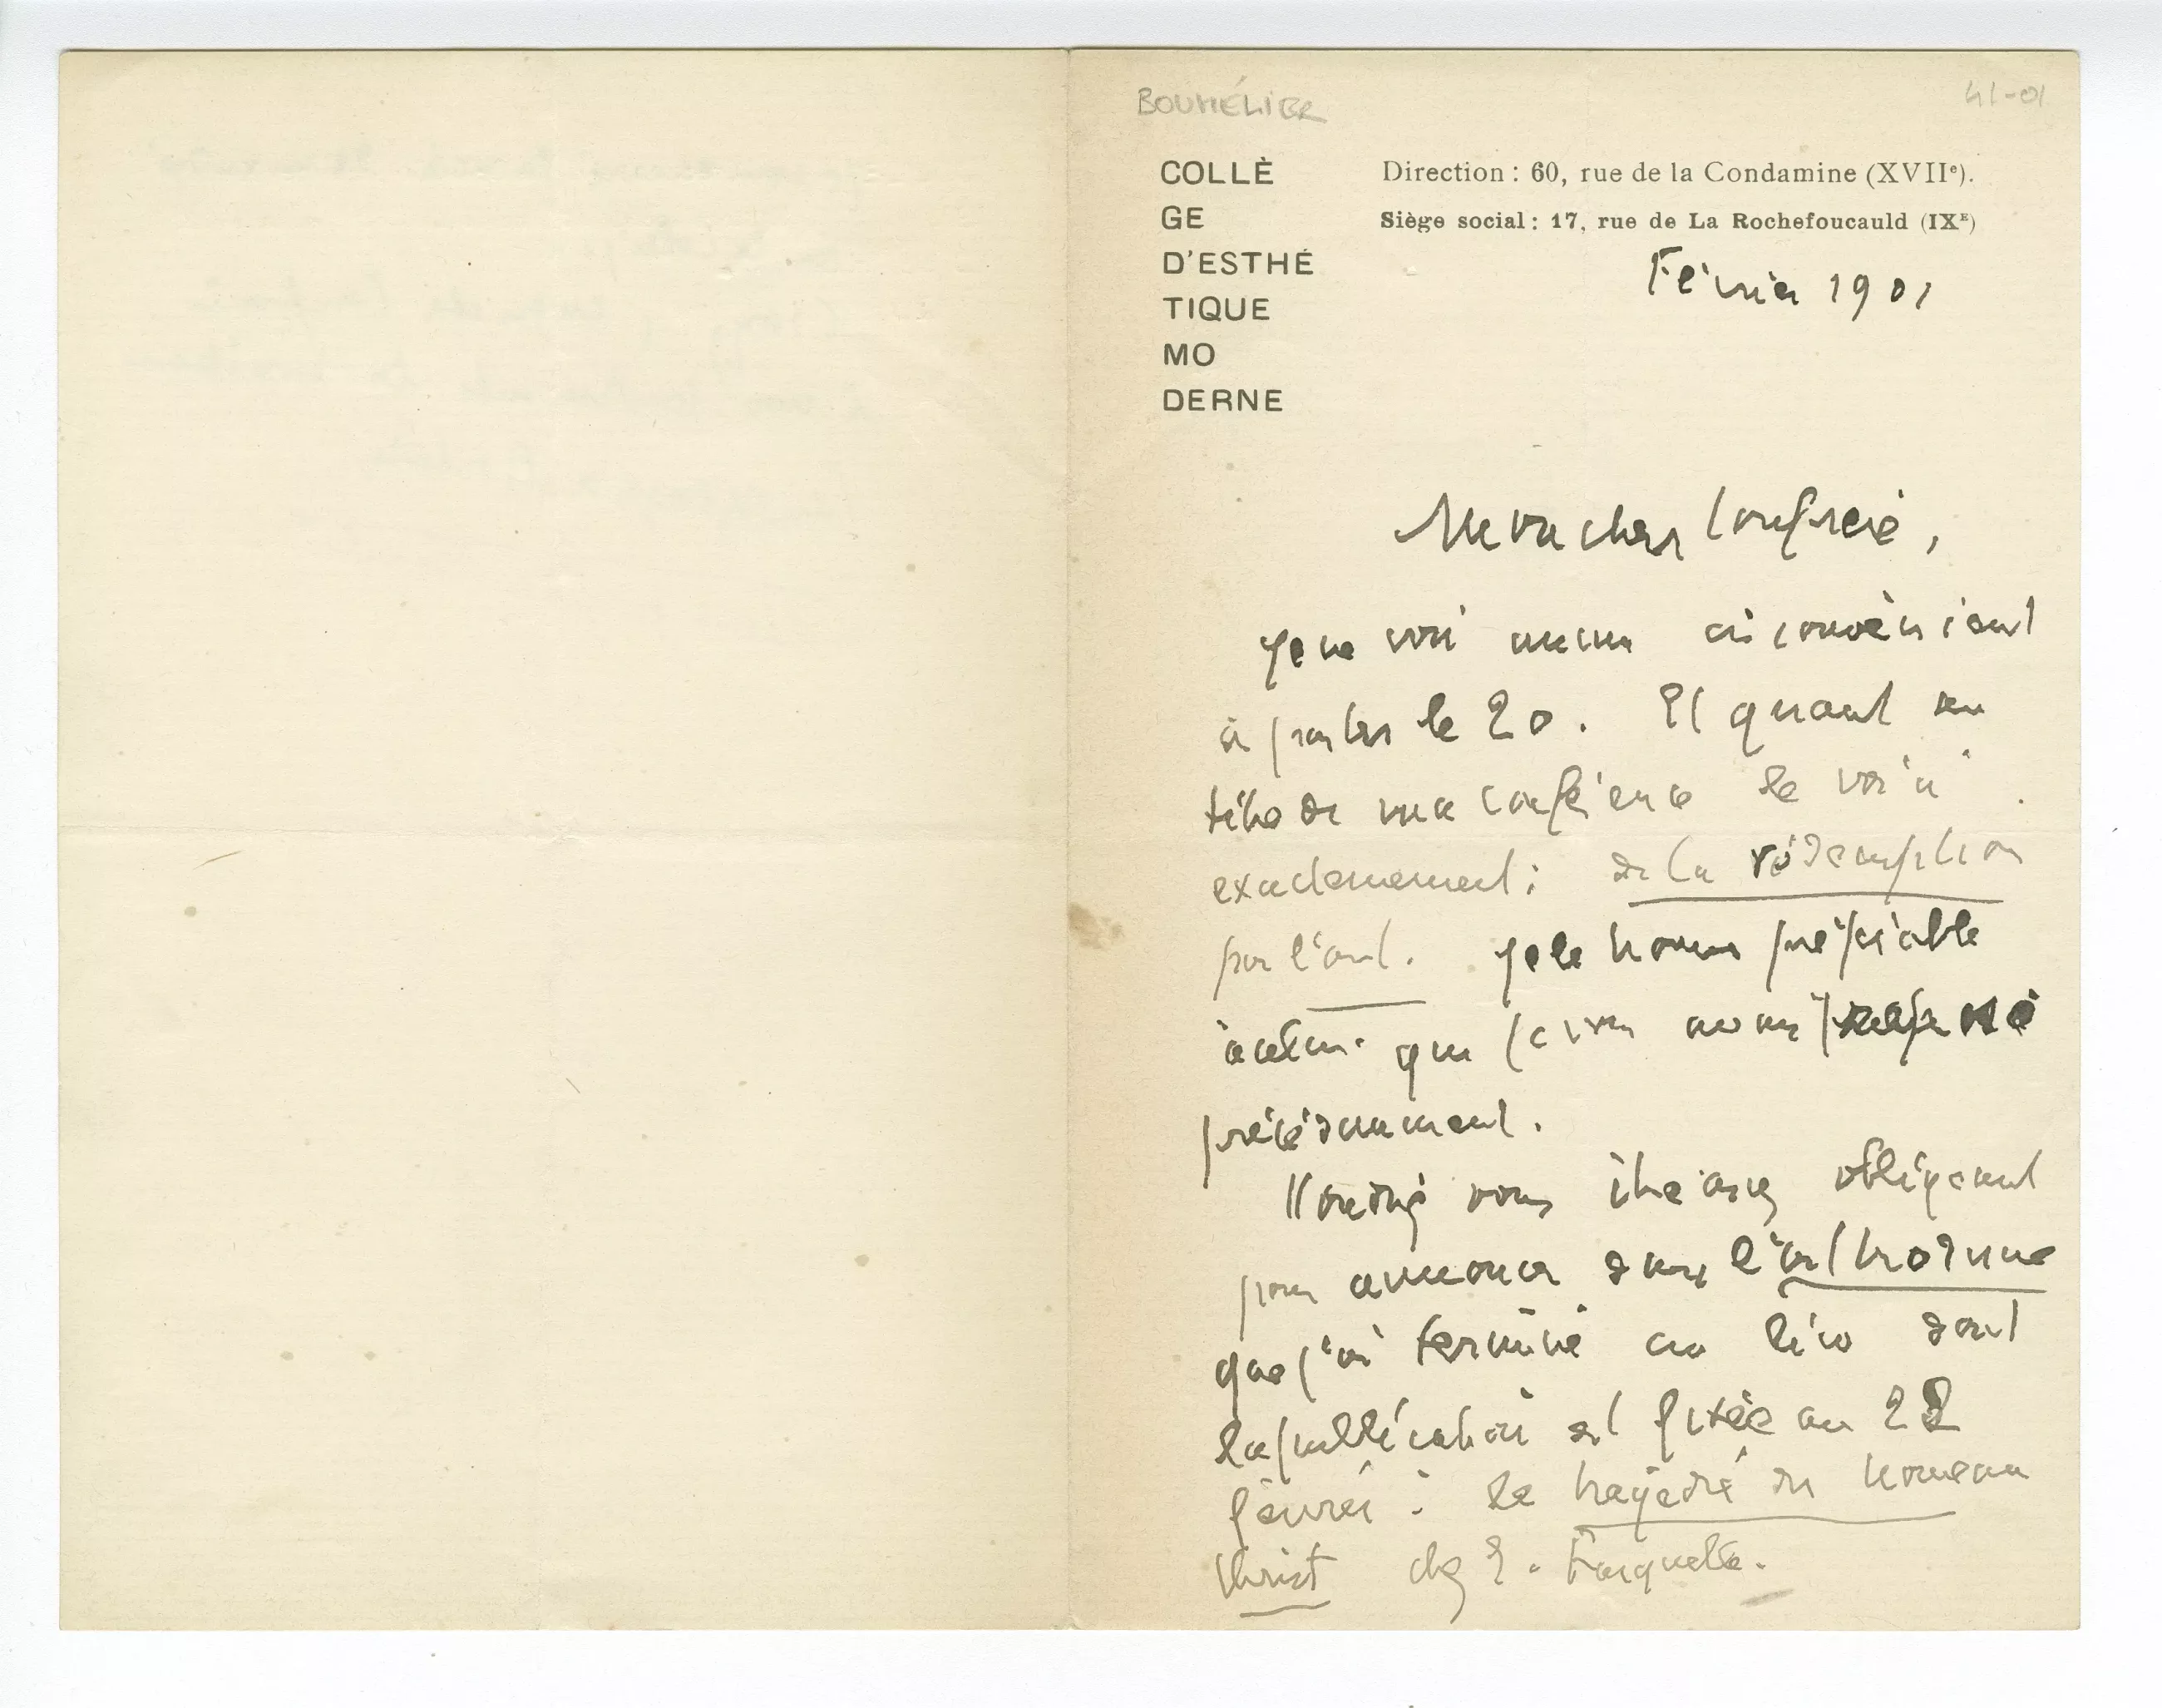 BOUHÉLIER
41-01
COLLÈ
GE
D'ESTHÉ
TIQUE
MO
DERNE
Direction : 60, rue de la Condamine (XVIIe).
Siège social : 17, rue de La Rochefoucauld (IXE)
Février 1901
Mon cher confrère,
Je ne vois aucun inconvénient
à parler le 20. Et quant au
titre de ma conférence le voici
exactement : de la rédemption
par l'art. Je le trouve préférable
à celui que je vous avais
précédemment.
Voudriez vous être assez obligeant
pour annoncer dans l'art moderne
que j'ai terminé un livre dont
la publication est fixée au 22
février : la tragédie du nouveau
Christ chez E. Fasquelle.